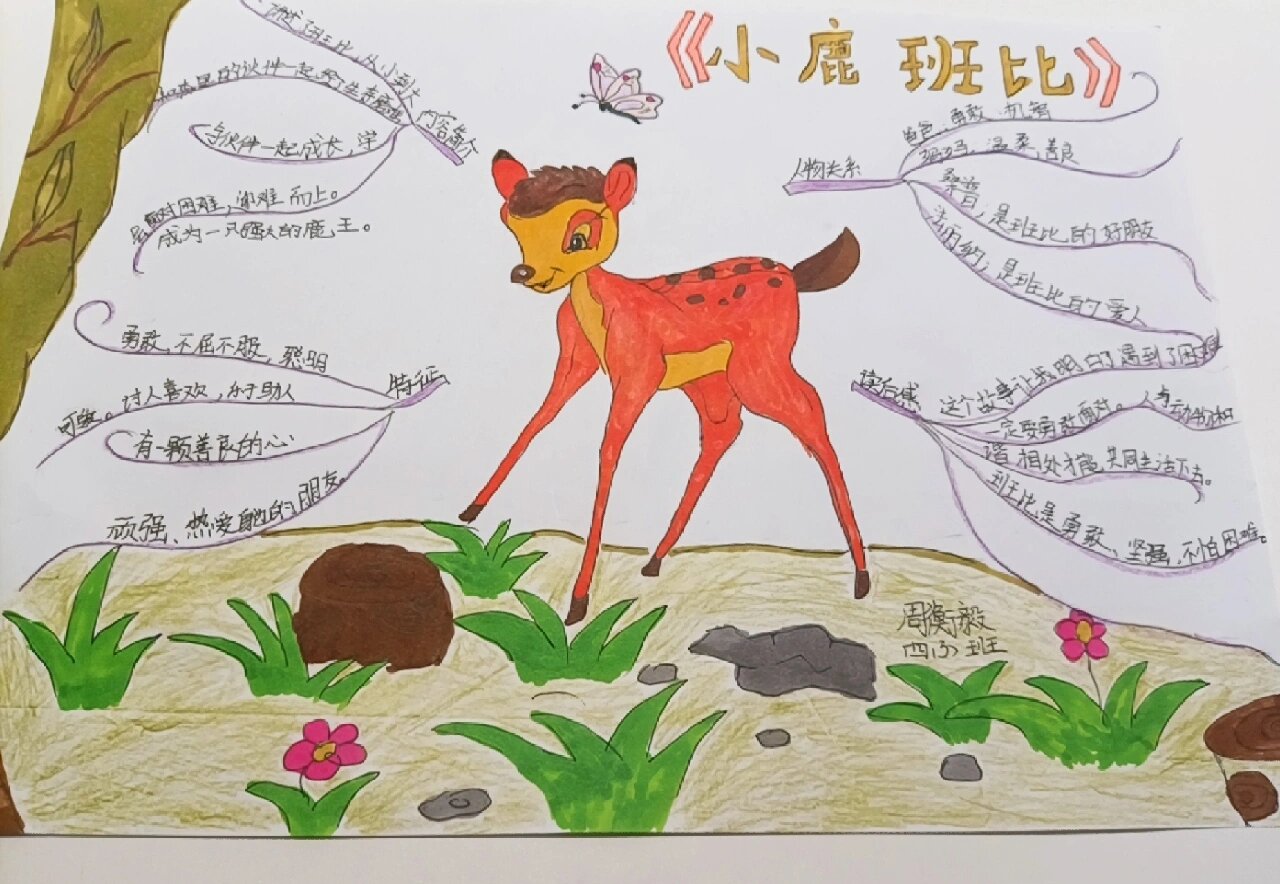 《小鹿班比》
内容简介
班比从小到大
里的伙伴一起
与伙伴一起成长,学
面对困难,迎难而上。
成为一只强大的鹿王。
特征
勇敢,不屈不服,聪明
可爱。讨人喜欢,乐于助人
有一颗善良的心
顽强、热爱自己的朋友。
人物关系
角色,勇敢,机智
妈妈,温柔,善良
桑普;是班比的好朋友
法丽纳;是班比的爱人
读后感
这个故事让我明白了遇到了困难
一定要勇敢面对。人与动物和
谐相处才能共同生活下去。
班比是勇敢、坚强,不怕困难。
周衡毅
四(3)班